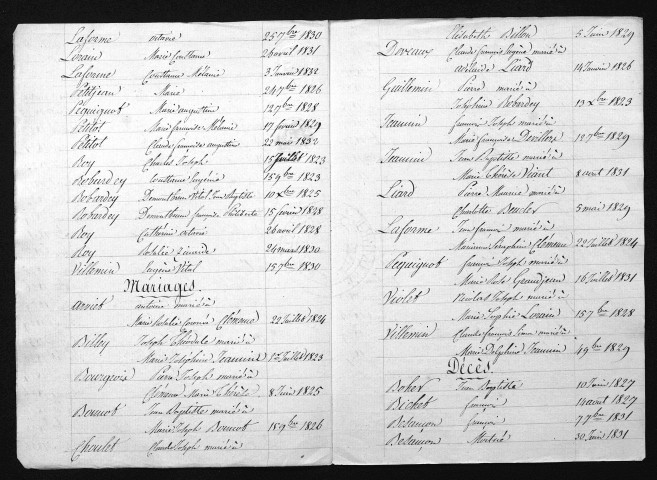 Laforme octavie 25 7bre 1830
Lorain Marie Constance 26 avril 1831
Laforme Constance Mélanie 3 Janvier 1832
Petitjean Marie 24 7bre 1826
Pequignot Marie augustine 12 7bre 1828
Petitot Marie françoise Mélanie 17 février 1829
Petitot Claude françois augustin 22 mai 1832
Roy Charles Joseph 15 Juillet 1823
Robardey Constance Eugénie 15 9bre 1823
Robardey Vital Jean Baptiste 10 Xbre 1825
Robardey françoise Philiberte 15 février 1828
Roy Cathérine octavie 26 avril 1828
Roy Rosalie 24 mars 1830
Villemin Eugène Vital 15 7bre 1830
Mariages.
Arnict antoine marié à
Marie Rosalie Clémence 22 Juillet 1824
Billey Joseph Théodule marié à
Marie Joséphine Jeannin 1er Juillet 1823
Bourgeois Pierre Joseph marié à
Marie Thérèse 8 Juin 1825
Bonnot Jean Baptiste marié à
Marie Joseph Bonnot 15 9bre 1826
Choulet Claude Joseph marié à
Elisabeth Billon 5 Juin 1829
Deveaux Claude françois Eugène marié à
adélaïde Liard 14 Janvier 1826
Guillemin Pierre marié à
Joséphine Robardey 13 Xbre 1823
Jeannin françois Joseph marié à
Marie françoise Devillers 12 7bre 1829
Jeannin Jean Baptiste marié à
Marie Thérèse Viard 8 avril 1831
Liard Pierre Maurice marié à
Charlotte Boucler 5 mai 1829
Laforme Jean françois marié à
Marianne Séraphine Clémence 22 Juillet 1824
Pequignot françois Joseph marié à
Marie Rose Grandjean 16 Juillet 1831
Violet Nicolas Joseph marié à
Marie Sophie Lorain 15 7bre 1828
Villemin Claude françois marié à
Marie Delphine Jeannin 4 9bre 1829
Décès.
Boker Jean Baptiste 10 Juin 1827
Bichet françois 14 avril 1827
Besançon françois 7 7bre 1831
Besançon 30 Juin 1831